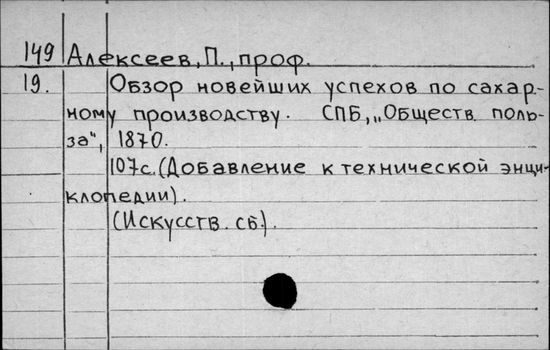 149 Алексеев, П., проф.
19. Обзор новейших успехов по сахар-
ному производству. СПБ, „Обществ. поль-
за", 1870.
107с. (Добавление к технической энци-
клопедии).
(Искусств. сб.).